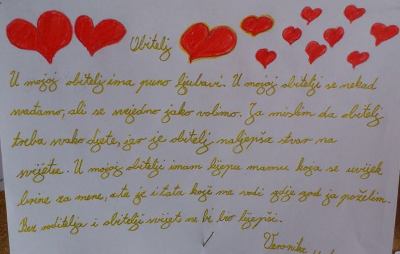 Obitelj
U mojoj obitelj ima puno ljubavi. U mojoj obitelji se nekad
svađamo, ali se svejedno jako volimo. Ja mislim da obitelj
treba svako dijete, jer je obitelj najljepša stvar na
svijetu. U mojoj obitelji imam lijepu mamu koja se uvijek
brine za mene, a te je i tata koji me vodi gdje god ja poželim.
Bez roditelja i obitelji svijet ne bi bio ljepši.
Veronika